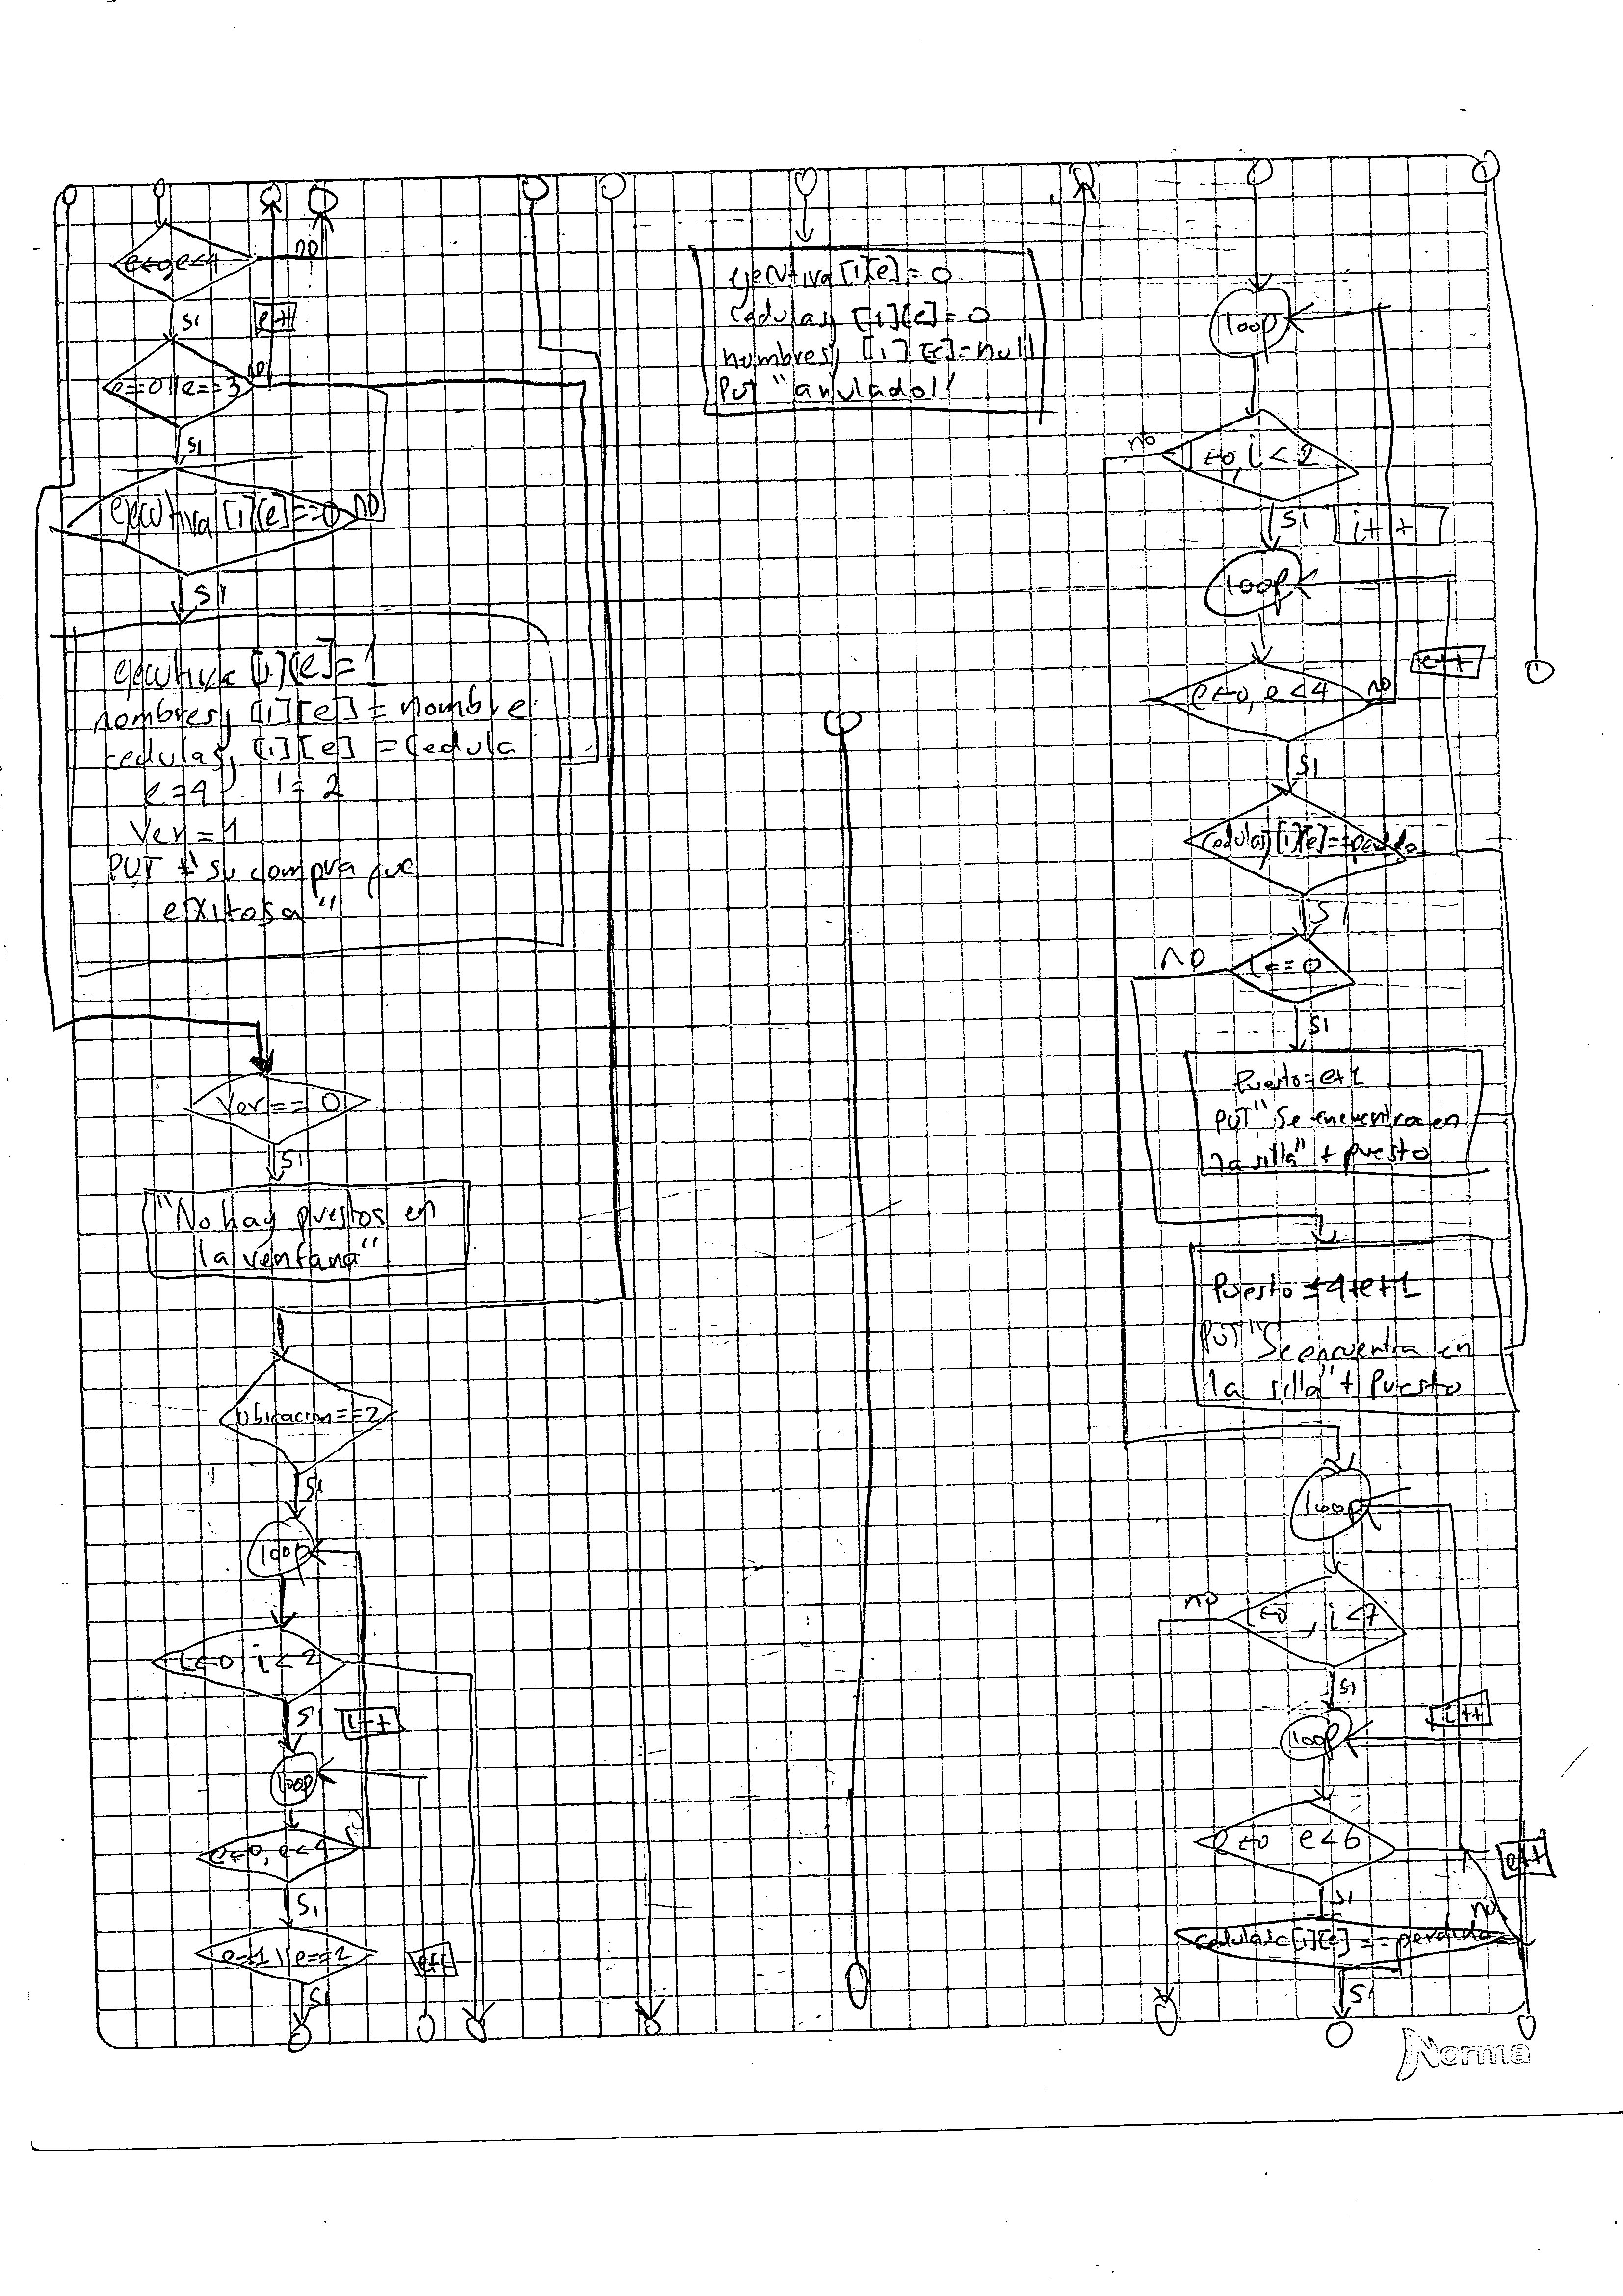 e←0, e<4
no
si
e++
e==0||e==3
no
si
ejecutiva [i][e]==0
no
si
ejecutiva [i][e]=1
nombresj [i][e] = nombre
cedulasj [i][e] = cedula
e=4 i=2
Ver=1
PUT "su compra fue
exitosa"
Ver==0
si
"No hay puestos en
la ventana"
ubicacion==2
si
loop
i←0, i<2
si
i++
loop
e←0, e<4
si
e==1||e==2
e++
si
ejecutiva [i][e]=0
cedulasj [i][e]=0
nombresj [i][e]=null
PUT "anulado"
loop
no
i←0, i<2
si
i++
loop
e++
e←0, e<4
no
si
cedulasj[i][e]==perdida
si
no
i==0
si
Puesto=e+1
PUT "Se encuentra en
la silla" + puesto
Puesto=4+e+1
PUT "Se encuentra en
la silla" + Puesto
loop
no
i←0, i<7
si
i++
loop
e←0 e<6
e++
si
no
cedulasc[i][e]==perdida
si
Norma